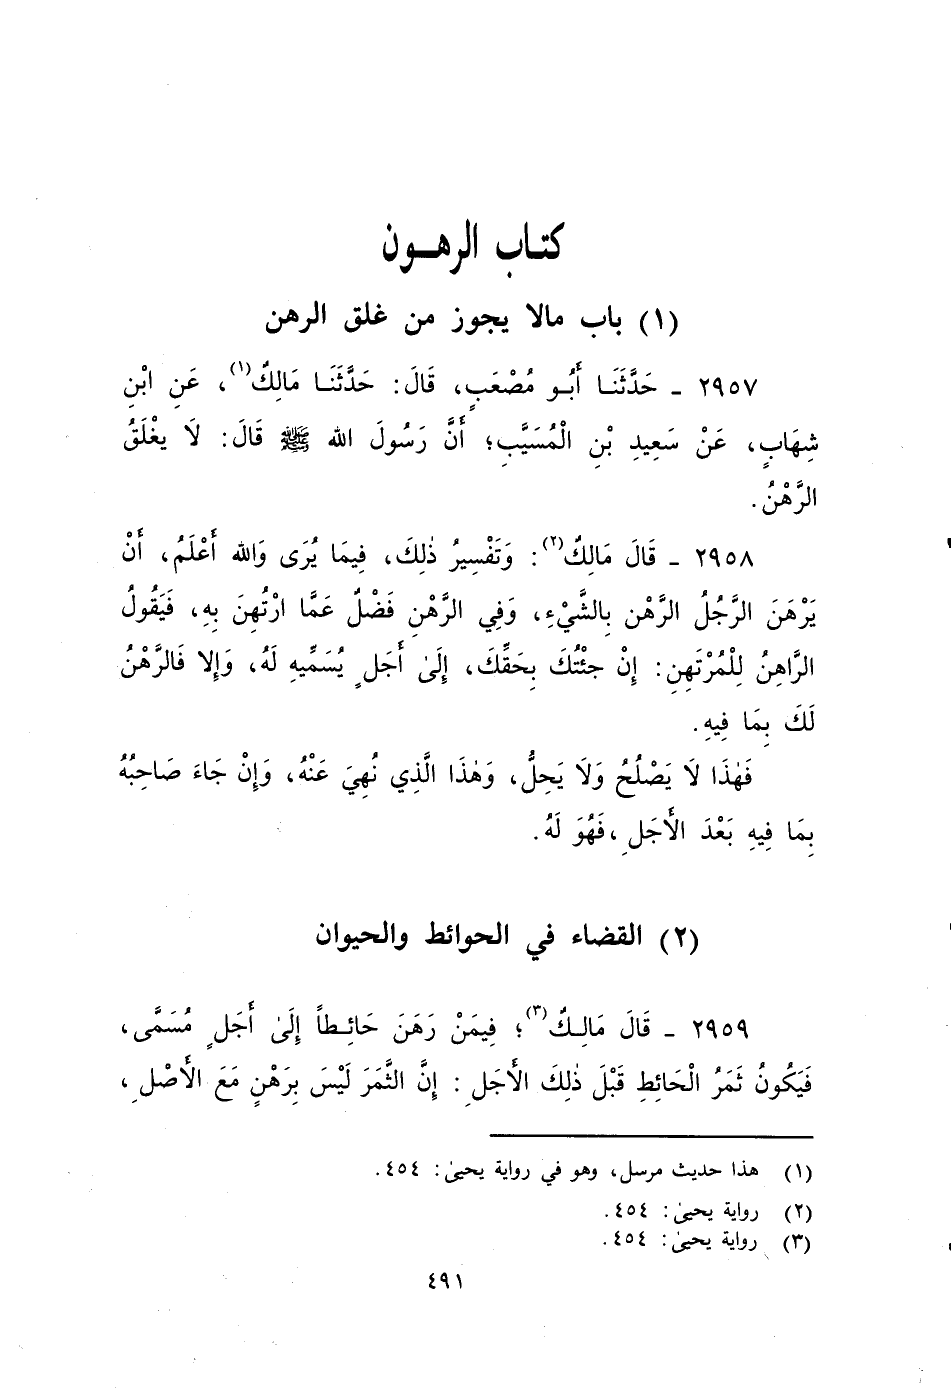 كتـاب الرهــون
(١) باب مالا يجوز من غلق الرهن
٢٩٥٧ ـ حَدَّثَنَـا أَبُـو مُصْعَبٍ، قَالَ: حَدَّثَنَـا مَالِكٌ(١)، عَنِ ابْنِ
شِهَابٍ، عَنْ سَعِيدِ بْنِ الْمُسَيَّبِ؛ أَنَّ رَسُولَ الله ﷺ قَالَ: لَا يغْلَقُ
الرَّهْنُ.
٢٩٥٨ ـ قَالَ مَالِكٌ(٢): وَتَفْسِيرُ ذٰلِكَ، فِيمَا يُرَى وَالله أَعْلَمُ، أَنْ
يَرْهَنَ الرَّجُلُ الرَّهْنِ بِالشَّيْءِ، وَفِي الرَّهْنِ فَضْلٌ عَمَّا ارْتُهِنَ بِهِ، فَيَقُولُ
الرَّاهِنُ لِلْمُرْتَهِنِ: إِنْ جئْتُكَ بِحَقِّكَ، إِلَىٰ أَجَلٍ يُسَمِّيهِ لَهُ، وَإِلا فَالرَّهْنُ
لَكَ بِمَا فِيهِ.
فَهٰذَا لَا يَصْلُحُ وَلَا يَحِلُّ، وَهٰذَا الَّذِي نُهِيَ عَنْهُ، وَإِنْ جَاءَ صَاحِبُهُ
بِمَا فِيهِ بَعْدَ الأَجَلِ، فَهُوَ لَهُ.
(٢) القضاء في الحوائط والحيوان
٢٩٥٩ ـ قَالَ مَالِـكٌ(٣)؛ فِيمَنْ رَهَنَ حَائِـطاً إِلَىٰ أَجَلٍ مُسَمَّى،
فَيَكُونُ ثَمَرُ الْحَائِطِ قَبْلَ ذٰلِكَ الأَجَلِ: إِنَّ الثَّمَرَ لَيْسَ بِرَهْنٍ مَعَ الأَصْلِ،
(١) هذا حديث مرسل، وهو في رواية يحيىٰ: ٤٥٤.
(٢) رواية يحيىٰ: ٤٥٤.
(٣) رواية يحيىٰ: ٤٥٤.
٤٩١